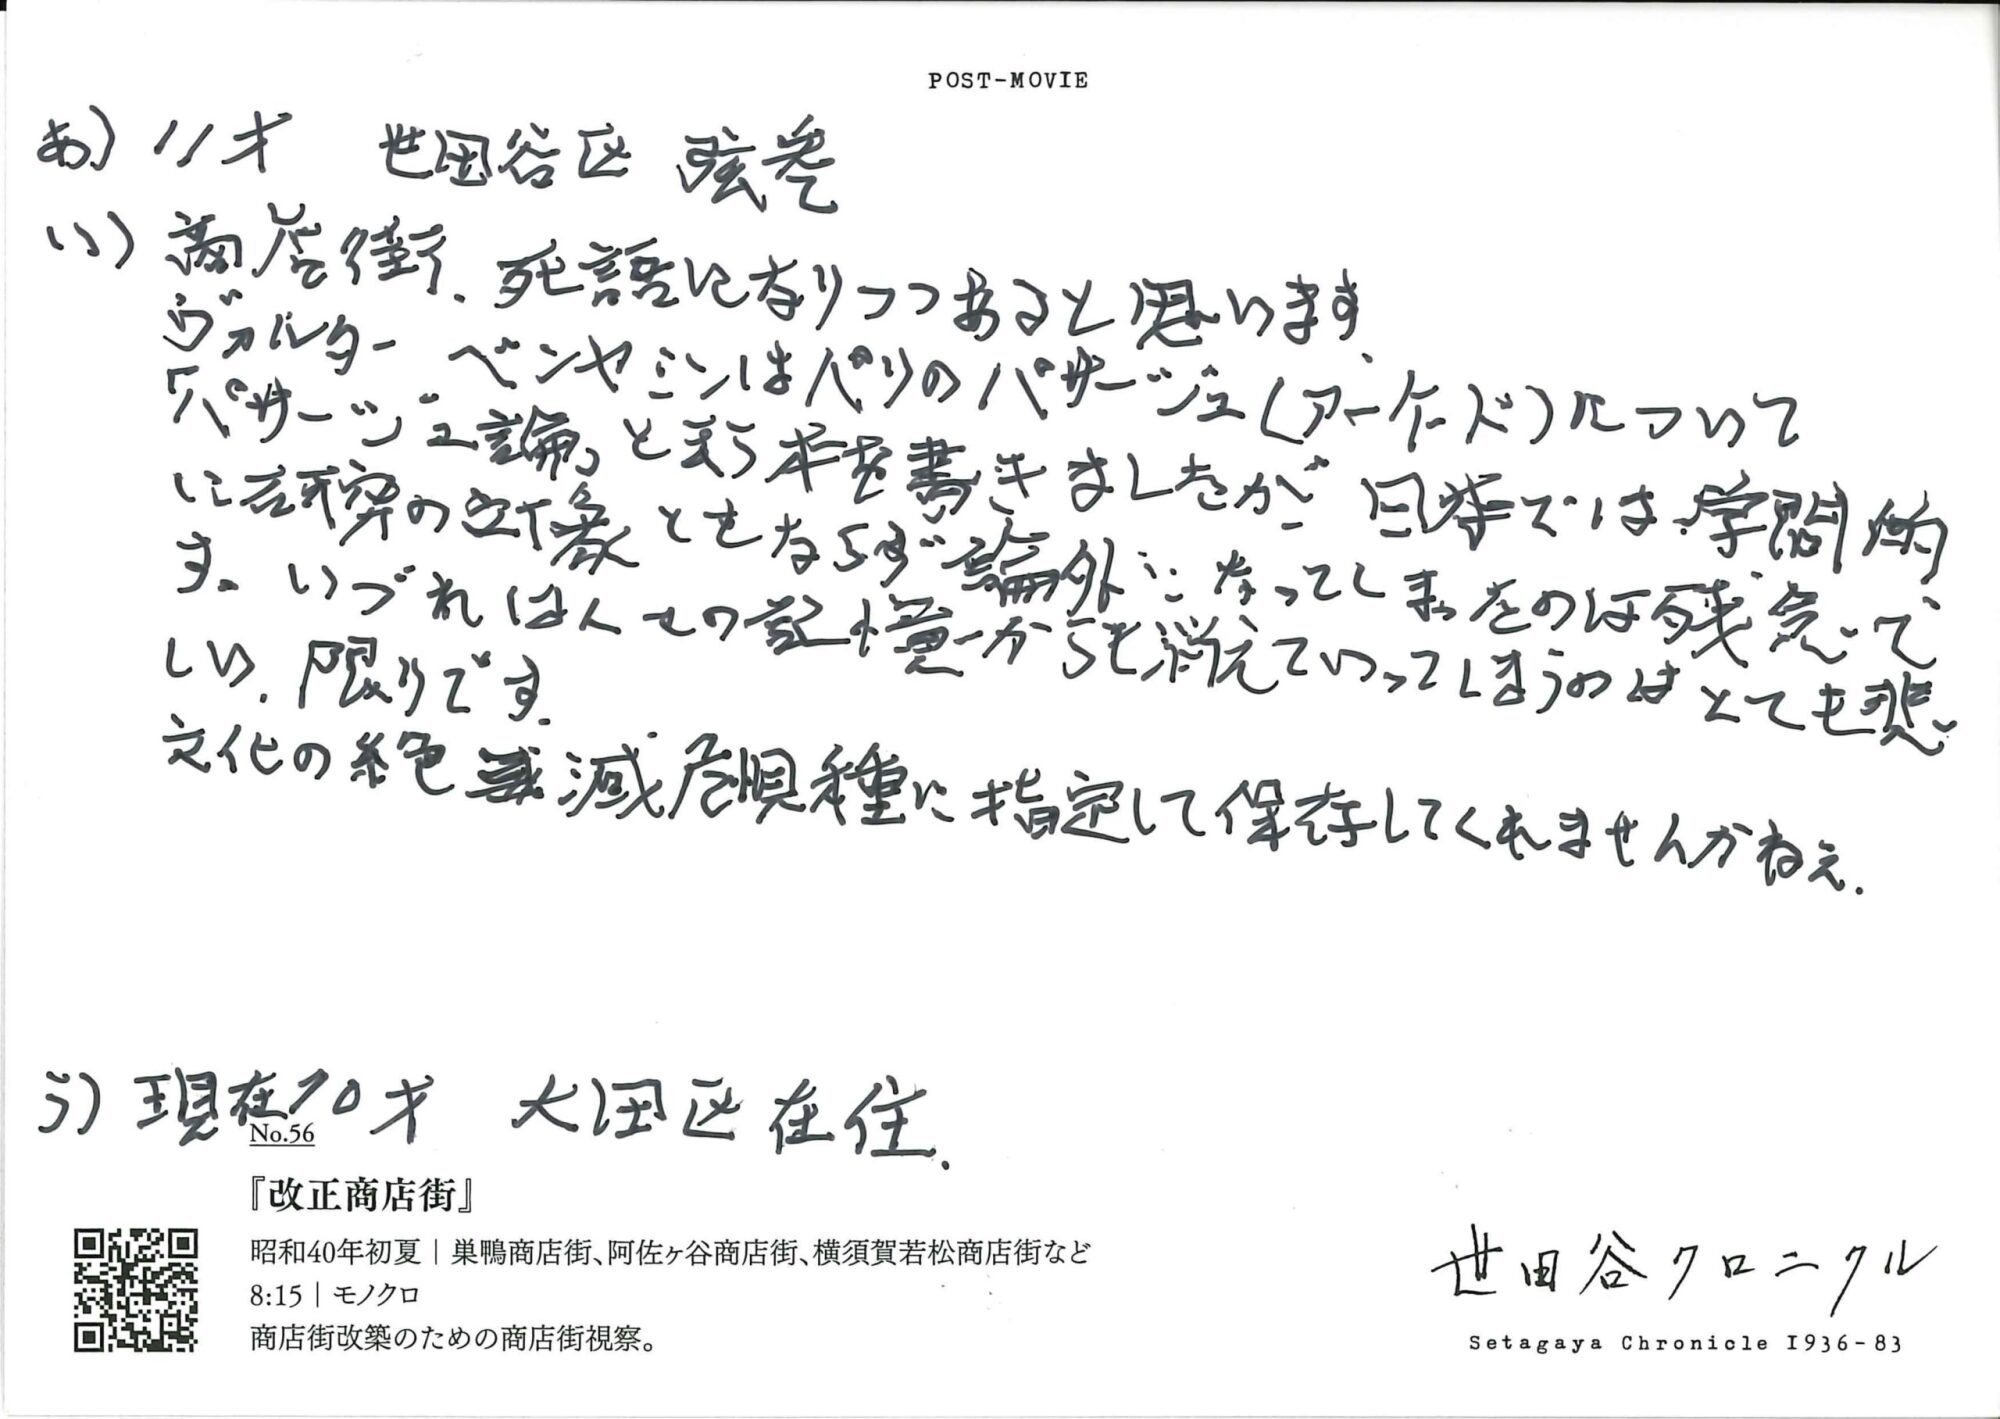 POST-MOVIE
あ) 11才 世田谷区 弦巻
い) 商店街、死語になりつつあると思います。
ヴァルター ベンヤミンはパリのパサージュ(アーケード)について
『パサージュ論』と云う本を書きましたが、日本では学問的
に研究の対象ともならず論外になってしまったのは残念で
す。いづれは人々の記憶からも消えていってしまうのはとても悲
しい、限りです。
文化の絶滅危惧種に指定して保存してくれませんかねぇ。
う) 現在70才 大田区在住。
No.56
『改正商店街』
昭和40年初夏｜巣鴨商店街、阿佐ヶ谷商店街、横須賀若松商店街など
8:15｜モノクロ
商店街改築のための商店街視察。
世田谷クロニクル
Setagaya Chronicle 1936-83